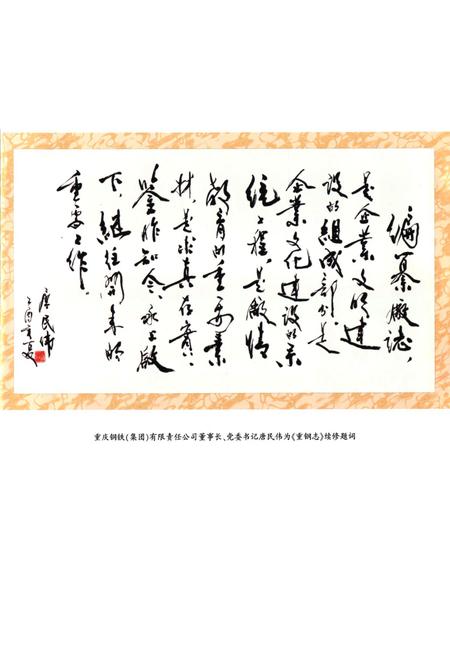 编纂厰志，
是企业文明建
设的组成部分，是
企业文化建设的系
统工程，是厰情
教育的重要素
材，是求真存实、
鉴昨知今、承上启
下、继往开来的
重要工作。
唐民伟
重庆钢铁(集团)有限责任公司董事长、党委书记唐民伟为《重钢志》续修题词